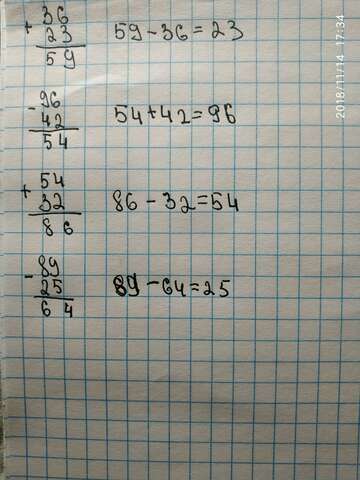 + 36
23
59
59 - 36 = 23
- 96
42
54
54 + 42 = 96
+ 54
32
86
86 - 32 = 54
- 89
25
64
89 - 64 = 25
2018/11/14 17:34